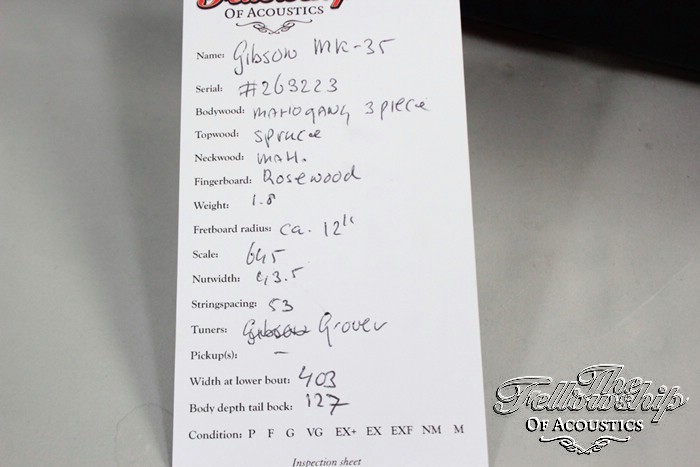 OF ACOUSTICS
Name: Gibson MK-35
Serial: #263223
Bodywood: MAHOGANY 3 piece
Topwood: Spruce
Neckwood: MAH.
Fingerboard: Rosewood
Weight: 1.8
Fretboard radius: ca. 12"
Scale: 645
Nutwidth: 43.5
Stringspacing: 53
Tuners: Gibson Grover
Pickup(s): –
Width at lower bout: 403
Body depth tail bock: 127
Condition: P F G VG EX+ EX EXF NM M
Inspection sheet
The
Fellowship
OF ACOUSTICS